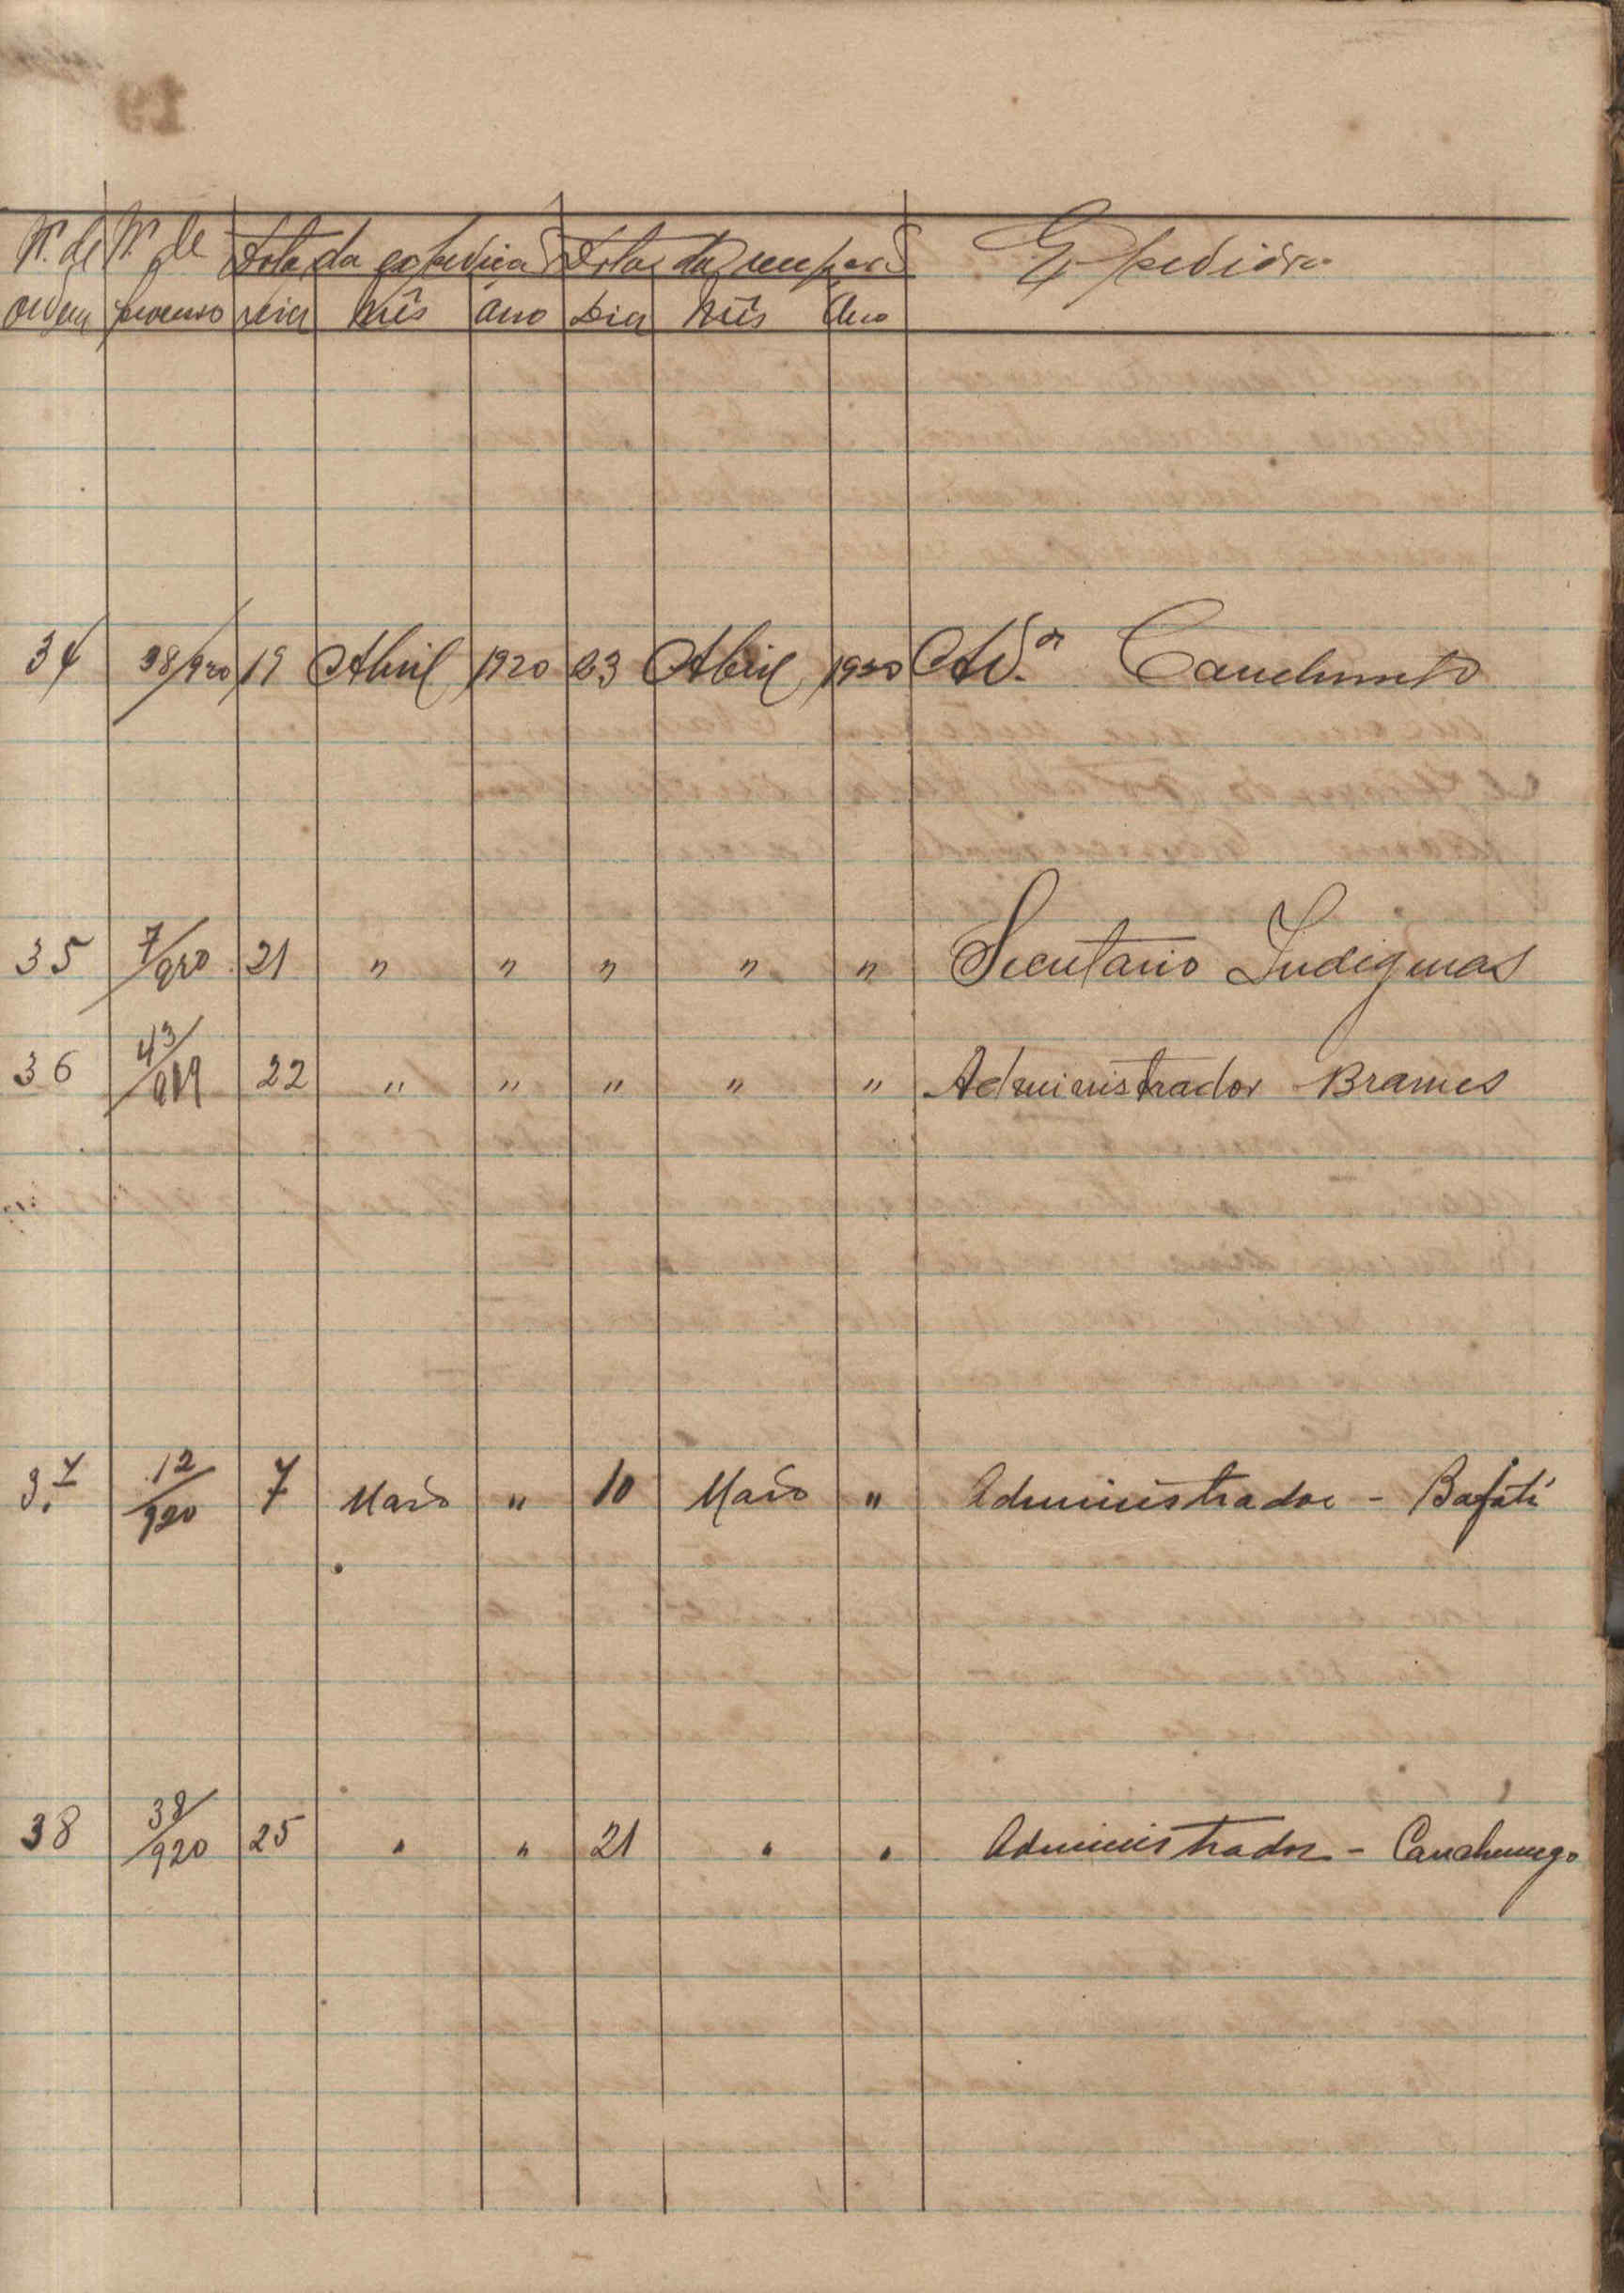 N.º de N.º de Data da expedição Data da recepção Expedidor
ordem processo Dia Mês Ano Dia Mês Ano
34 38/920 19 Abril 1920 23 Abril 1920 Ad.or
35 7/920 21 " " " " " Secretario Indigenas
36 43/919 22 " " " " " Administrador Brames
37 12/920 7 Maio " 10 Maio " Administrador - Bafatá
38 38/920 25 " " 21 " " Administrador - Canchungo